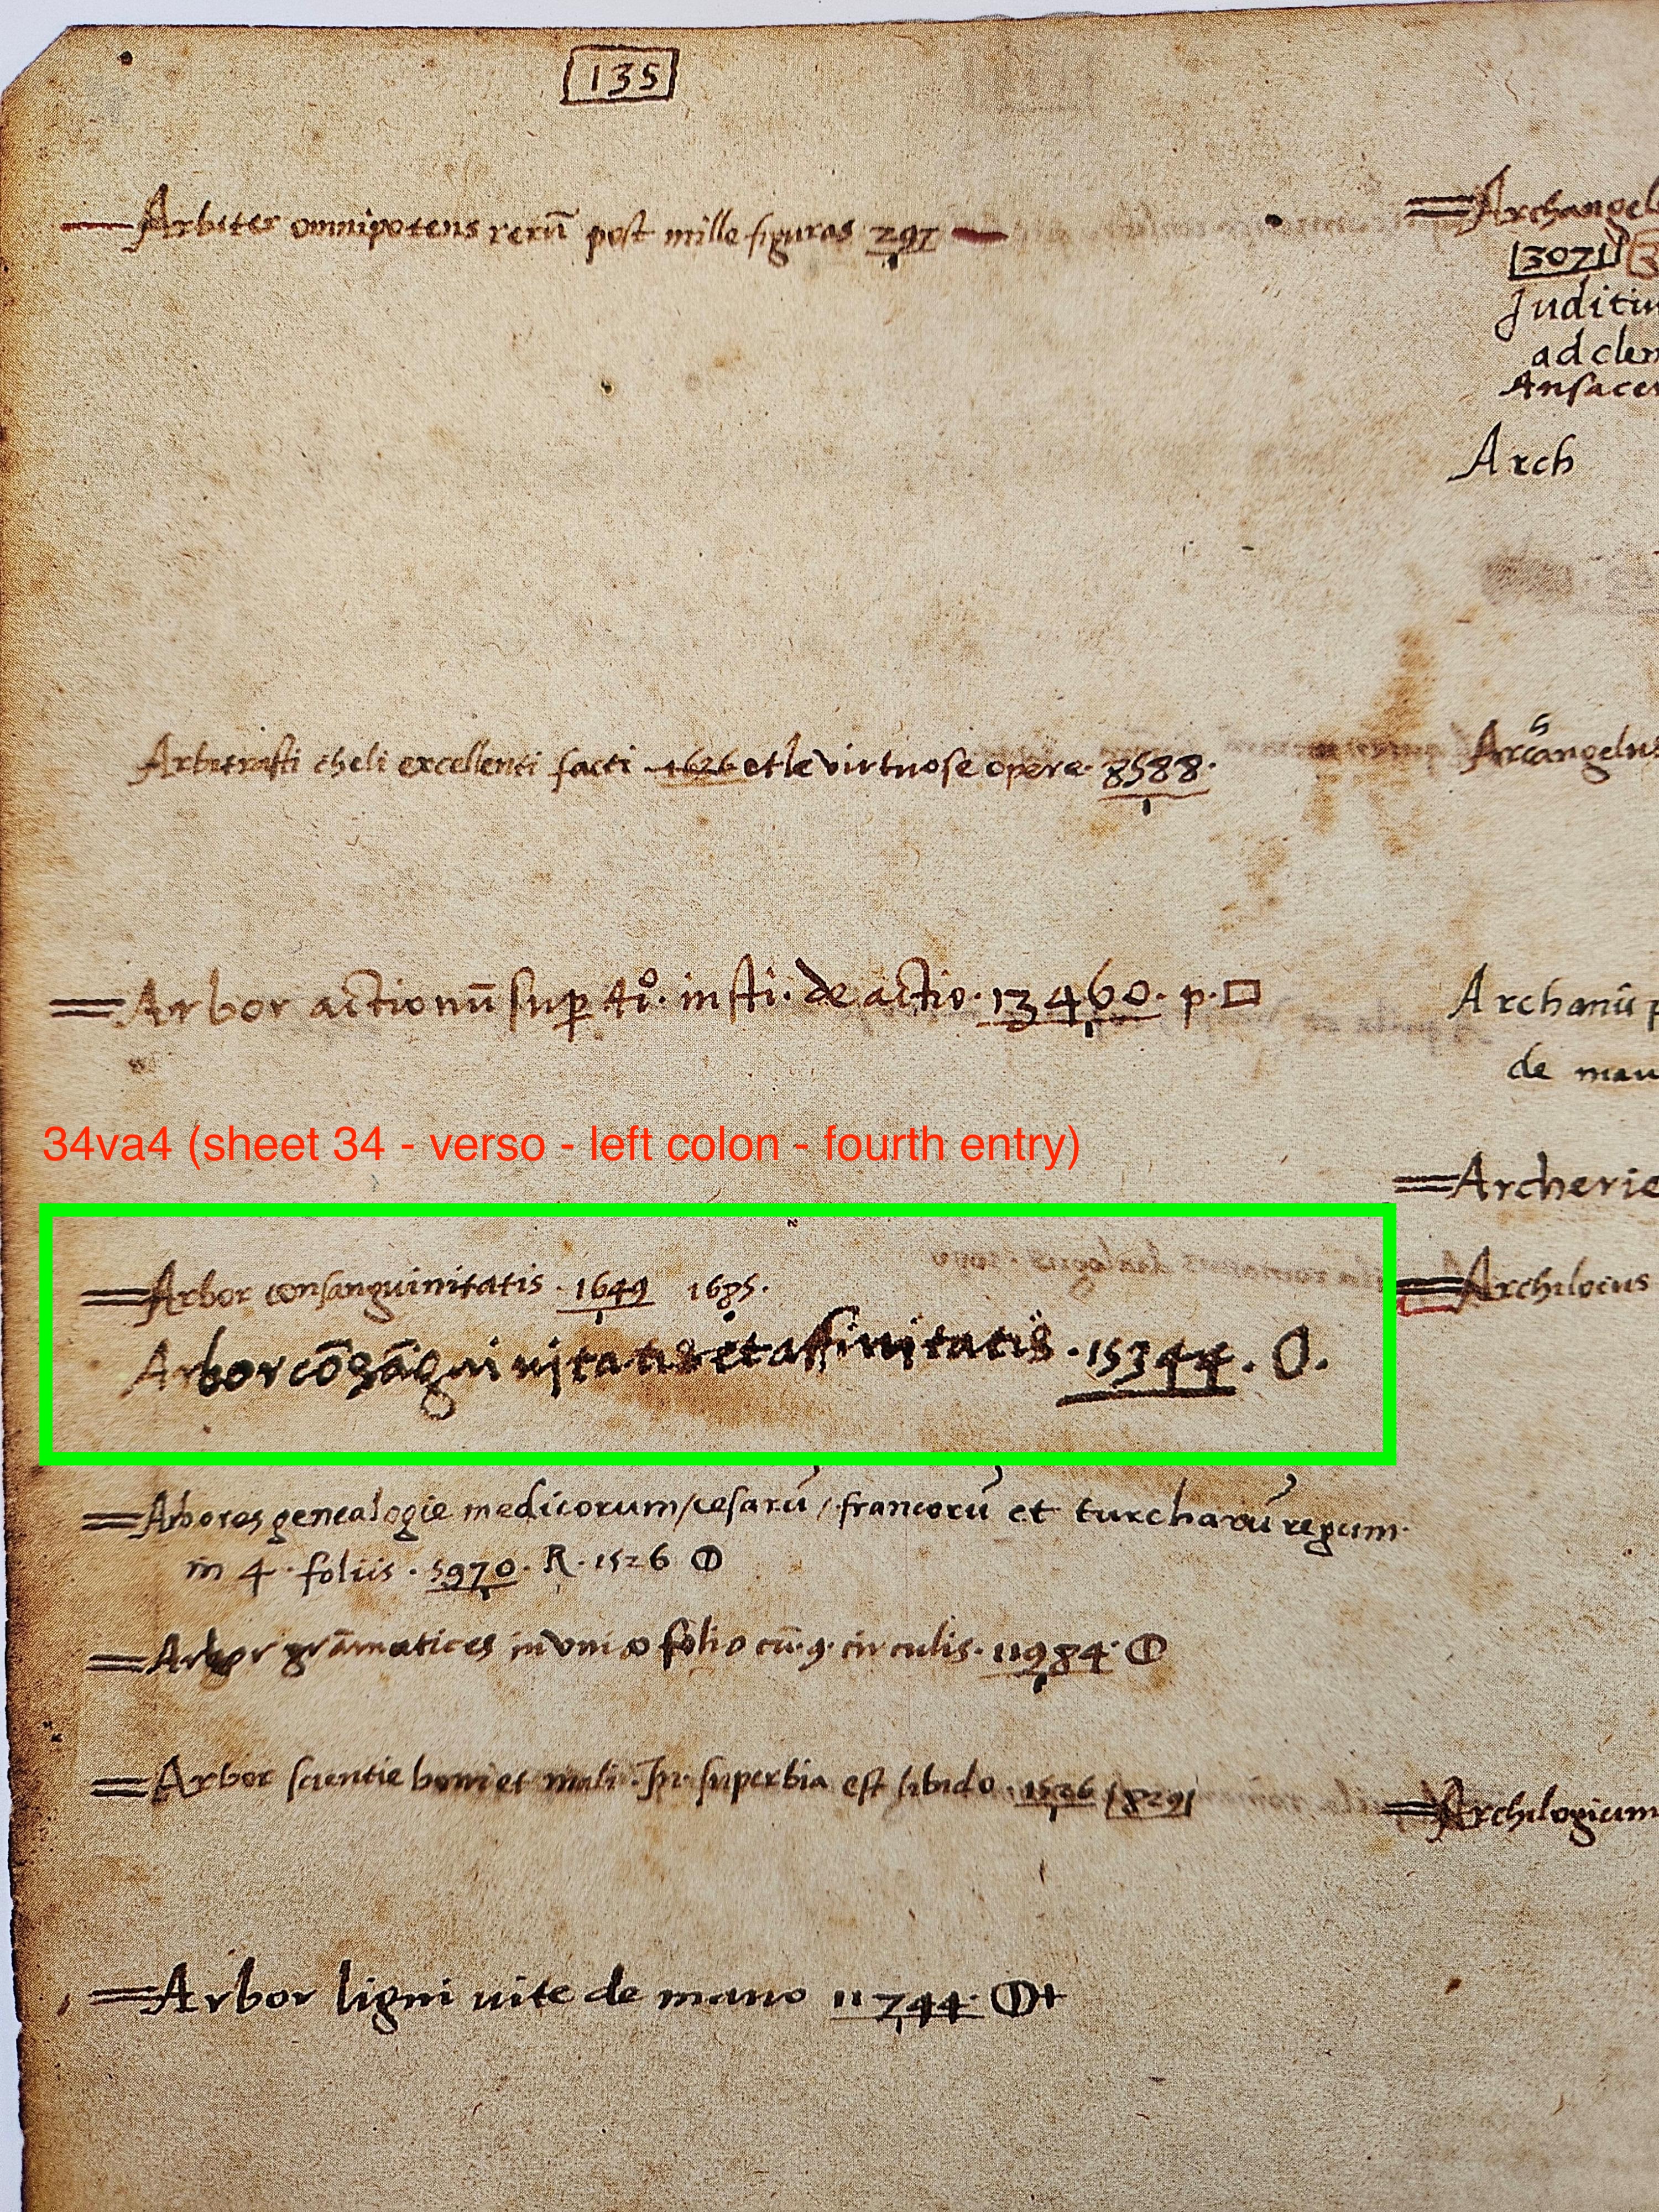 135
Arbiter omnipotens rerū post mille figuras 297
Arbitrasti cheli excellenti facti 1626 et le virtuose opere. 8588.
Arbor actionū sup 4i⁰. insti. de actio. 13460. p. □
34va4 (sheet 34 - verso - left colon - fourth entry)
Arbor consanguinitatis. 1649 1685.
Arbor cōsāguinitatis et affinitatis. 15344. O.
Arbores genealogie medicorum / cesarū / francorū et turcharū regum.
in 4 foliis. 5970. R. 1526
Arbor grāmatices in vnio folio cū. 9. circulis. 11984.
Arbor scientie boni et mali. In. superbia est libido. 1526 8291
Arbor ligni uite de mano 11744. +
Archangel
3071
Juditiu
ad clem
Ansacer
Arch
Arcangelus
h
Archanū p
de mau
Archerie
Archilocus
Archilogium